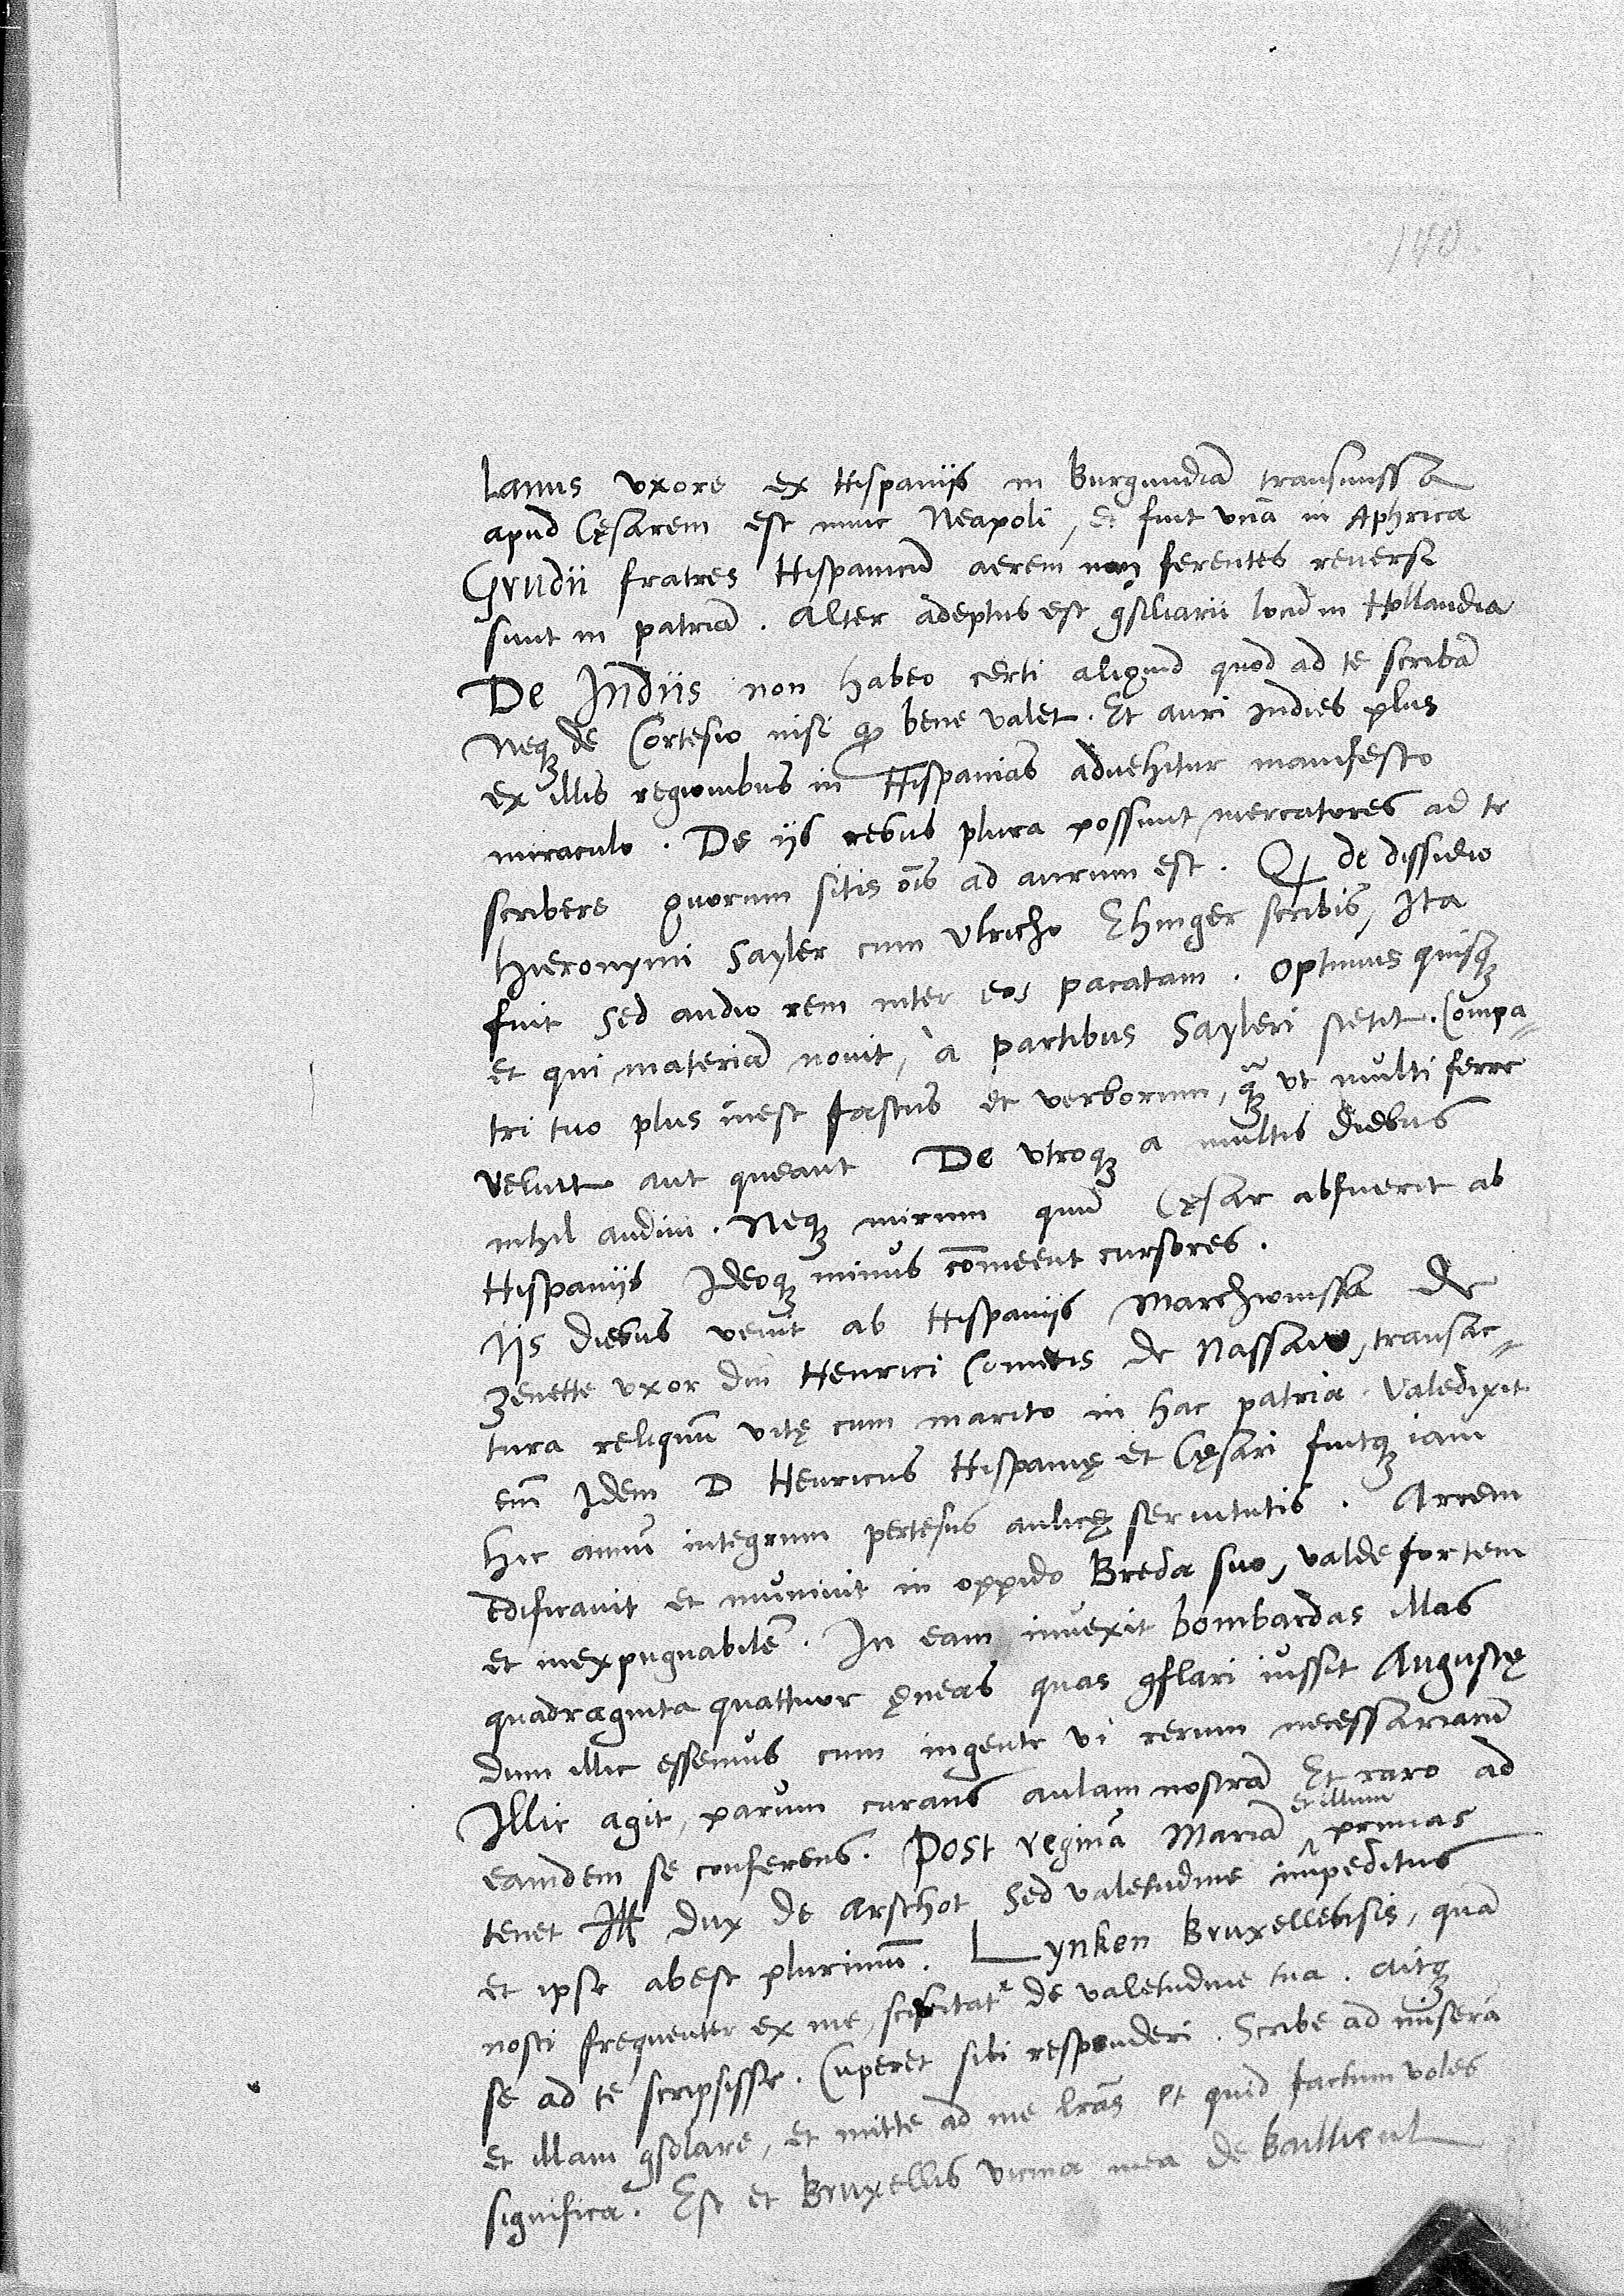 140.
lanus vxore ex Hispaniis in Burgundiā transmissa
apud Cęsarem est nunc Neapoli, et fuit vnā in Aphrica
Grudii fratres Hispanicū aerem non ferentes reuersi
sunt in patriā. Alter adeptus est ꝯsiliarii locū in Hollandia
De Indiis non habeo certi aliquid quod ad te scribā
Neqꝫ de Cortesio nisi ꝙ bene valet. Et auri indies plus
ex illis regionibus in Hispanias aduehitur manifesto
miraculo. De iis rebus plura possunt mercatores ad te
scribere quorum sitis ōis ad aurum est. Qꝫ de dissidio
Hieronymi Sayler cum Vlricho Ehinger scribis, Ita
fuit sed audio rem inter eos pacatam. Optimus quisqꝫ
et qui materiā nouit, à partibus Sayleri stetit. Compa⸗
tri tuo plus inest fastus et verborum, qꝫ̄ vt multi ferre
velint aut queant De vtroqꝫ a multis diebus
nihil audiui. Neqꝫ mirum quū Cęsar abfuerit ab
Hispaniis Ideoqꝫ minus cōmeent cursores.
Iis diebus venit ab Hispaniis Marchionissa de
Zenette vxor dni Henrici Comitis de Nassaw, transac⸗
tura reliquū vitę cum marito in hac patria. Valedixit
em̄ Idem D Henricus Hispanię et Cęsari fuitqꝫ iam
hic annū integrum pertesus aulicę seruitutis. Arcem
edificauit et muniuit in oppido Breda suo, valde fortem
et inexpugnabilē. In eam inuexit bombardas illas
quadraginta quattuor ęneas quas ꝯflari iussit Augustę
dum illic essemus cum ingente vi rerum necessariarū
Illic agit, parum curans aulam nostrā Et raro ad
eamdem se conferens. Post reginā Mariā et illum primas
tenet Dux de Arschot Sed valetudine impeditus
et ipse abest plurimū. Lynken Bruxellensis, quā
nosti frequenter ex me, sciscitatᵘʳ de valetudine tua. Aitqꝫ
se ad te scripsisse. Cuperet sibi responderi. Scribe ad miserā
et illam ꝯsolare, et mitte ad me lrās et quid factum voles
significa. Est et Bruxellis vicina mea de Baillieul